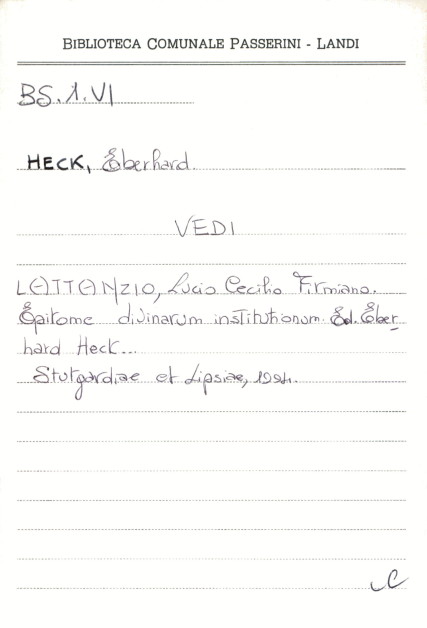 BIBLIOTECA COMUNALE PASSERINI - LANDI
BS.1.VI
HECK, Eberhard.
VEDI
LATTANZIO, Lucio Cecilio Firmiano.
Epitome divinarum institutionum. Ed. Eber
hard Heck...
Stutgardiae et Lipsiae, 1994.